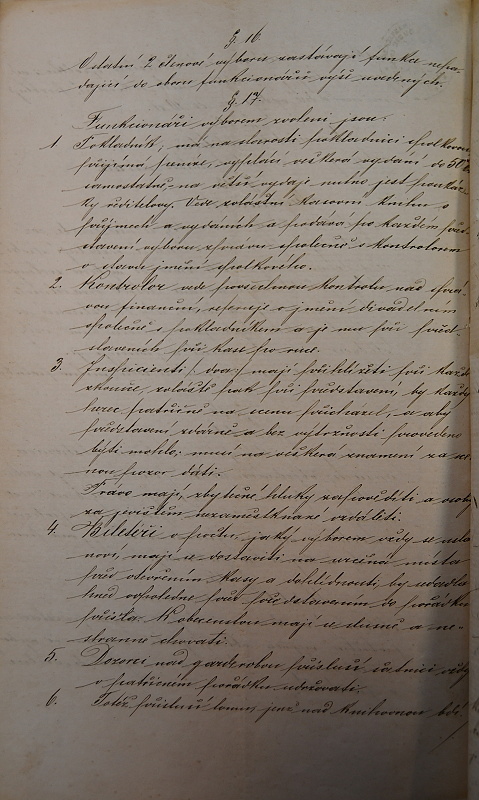 § 16.
Ostatní 2 členové výboru zastávají funkce nespa-
dající do oboru funkcionářů výše uvedených.
§ 17.
Funkcionáři výborem zvoleni jsou:
1. Pokladník, má na starosti pokladnici spolkovou
přijímá peníze, vyplácí veškerá vydání do 50
samostatně na větší vydaje nutno jest poukáz-
ky ředitelovy. Vede zvláštní kasovní knihu o
příjmech a vydáních a podává po každém před-
stavení výboru zprávu společně s kontrolorem
o stavu jmění spolkového.
2. Kontrolor vede povšechnou kontrolu nad sprá-
vou finanční, referuje o jmění divadelním
společně s pokladníkem a je mu při před-
staveních při kase po ruce.
3. Inspicienti (dva) mají přihlížeti při každé
zkoušce, zvláště pak při představení, by každý
herec patřičně na scenu přicházel, a aby
představení zdárně a bez výtržnosti provedeno
býti mohlo; musí na veškerá znamení za sce-
nou pozor dáti.
Právo mají, zbytečné hluky zapověděti a osoby
za jevištěm nezaměstknané vzdáliti.
4. Biletéři o počtu jaký výborem vždy se usta-
noví mají se dostaviti na určená místa
před otevřením kasy a dohlédnouti, by sedadla
hned odpoledne před představením do pořádku
přišla. K obecenstvu mají se slušně a ne-
stranně chovati.
5. Dozorci nad garderobou přísluší šatnici vždy
v patřičném pořádku udržovati.
6. Totéž přísluší tomu jenž nad knihovnou bdí